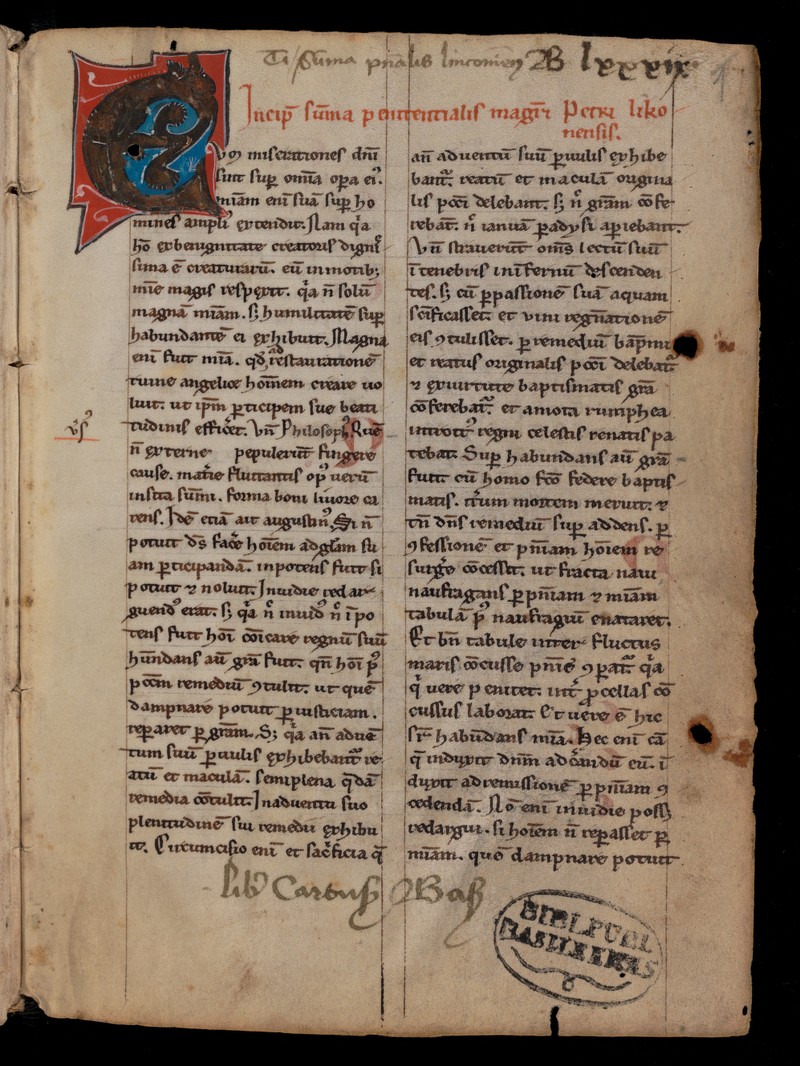 Ti Sūma pn̄alis linconien̄ B lxxxix
Incip̄ sūma penitentialis magr̄i Petri liko
nensis.
miserationes dn̄i
sunt sup̄ omīa oꝑa eiꝰ.
miām enī suā sup̄ ho
mines ampliꝰ extendit. Nam qͥa
hō ex benignitate creatoris digniſ
sima ē creaturarū. eū in motib;
mīe magis respexit. qͥa n̄ solū
magnā miām. sꝫ humilitatē suꝑ
habundantē ei exhibuit. Magna
enī fuit mīa. qd̄ restaurationē
ruine angelice hoīem creare uo
luit. ut ip̄m ꝑticipem sue beati
tudinis efficeꝛet. Vn̄ Philosophꝰ Quē
ṽsꝰ
n̄ externe pepulerūt fingere
cause. mat̾ie fluitantis opꝰ uerū
insita sūmi. forma boni liuore ca
rens. Idē etiā ait augustinꝰ. Si n̄
potuit dſ̄ facere hoīem ad gl̄am su
am ꝑticipandā. inpotens fuit si
potuit ⁊ noluit. Inuidie redar
guendꝰ erat. sꝫ qͥa n̄ inuidꝰ n̄ īpo
tens fuit hoī cōicare regnū suū
hūndans aū gr̄a fuit. qn̄ hoī pꝰ
pccm̄ remediū ꝯtulit. ut quē
dampnare potuit ꝑ iusticiam.
reꝑaret ꝑ gr̄am. Sꝫ qͥa an̄ aduē
tum suū ꝑuulis exhibebantur re
atū et maculā. semiplena q̄dā
remedia cōtulit. In aduentu suo
plenitudinē sui remedii exhibu
it. Circumcisio enī et sacͥficia q̄
an̄ aduentū suū ꝑuulis exhibe
bantur. reatū et maculā origina
lis pcc̄i delebant. sꝫ n̄ gr̄am cōfe
rebāt. n̄ ianuā ꝑadysi aꝑiebant.
Vn̄ strauerūt om̄s lectū suū
ī tenebris in īfernū descenden
tes. sꝫ cū ꝑ passionē suā aquam
sc̄ificasset. et uim regn̄ationē
eis ꝯtulisset. ꝑ remediū bap̄mi
et reatus originalis pcc̄i delebat̾
⁊ ex uirtute baptismatis gr̄a
cōferebat̾. et amota rumphea
introitꝰ regni celestis renatis pa
tebat. Suꝑ habundans aū gr̄a
fuit cū homo fcō federe baptis
matis. iterum mortem meruit. ⁊
tn̄ dn̄s remediū suꝑ addens. ꝑ
ꝯfessionē et pn̄iam hoīem re
surgere cōcessit. ut fracta naui
naufragans ꝑ pn̄iam ⁊ miām
tabulā pꝰ naufragiū enataret.
Et bn̄ tabule inter fluctus
maris cōcusse pn̄ie ꝯꝑat̾. qͥa
qͥ uere penitet. int̾ ꝓcellas cō
cussus laborat. Et uere ē hic
habūdans mīa. Hec enī cā
q̄ induxit dn̄m ad cͥandū eū. ī
duxit ad remissionē ꝑ pn̄iam ꝯ
cedendā. Nō enī inuidie possꝫ
redargui. si hoīem n̄ reꝑasset ꝑ
miām. quē dampnare potuit
lib̾ Cartusꝫ Basꝫ
BIBL. PUBL.
BASILEENSIS